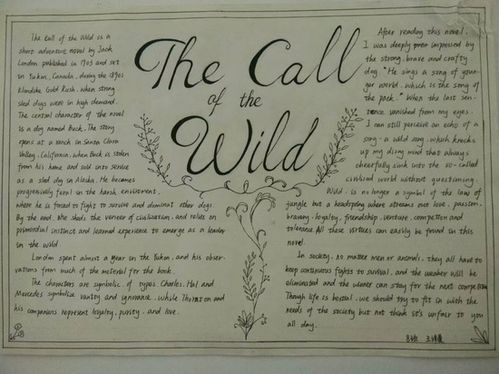 The Call
of the
Wild
The Call of the Wild is a
short adventure novel by Jack
London published in 1903 and set
in Yukon, Canada, during the 1890s
Klondike Gold Rush, when strong
sled dogs were in high demand.
The central character of the novel
is a dog named Buck. The story
opens at a ranch in Santa Clara
Valley, California, when Buck is stolen
from his home and sold into service
as a sled dog in Alaska. He becomes
progressively feral in the harsh environment,
where he is forced to fight to survive and dominat other dogs.
By the end, He sheds the veneer of civilization, and relies on
primordial instinct and learned experience to emerge as a leader
in the wild
London spent almost a year in the Yukon, and his obser-
vations form much of the material for the book.
The characters are symbolic of types. Charles, Hal and
Mercedes symbolize vanity and ignorance, while Thornton and
his companions represent loyalty, purity, and love.
After reading this novel,
I was deeply impressed by
the strong, brave and crafty
dog. "He sings a song of youn-
ger world, which is the song of
the pack." When the last sen-
tence vanished from my eyes,
I can still perceive an echo of a
song - a wild song, which knocks
up my dozing mind that always
cheerfully sink into the so-called
civilized world without questioning.
Wild is no longer a symbol of the law of
jungle but a headspring where streams out love, passion,
bravery, loyalty, friendship, venture, competion and
tolerance. All these virtues can easily be found in this
novel.
In society, no matter men or animals, they all have to
keep continuous fights to survival, and the weaker will be
eliminated and the winner can stay for the next competition.
Though life is bestial, we should try to fit in with the
needs of the society but not think it's unfair to you
all day.